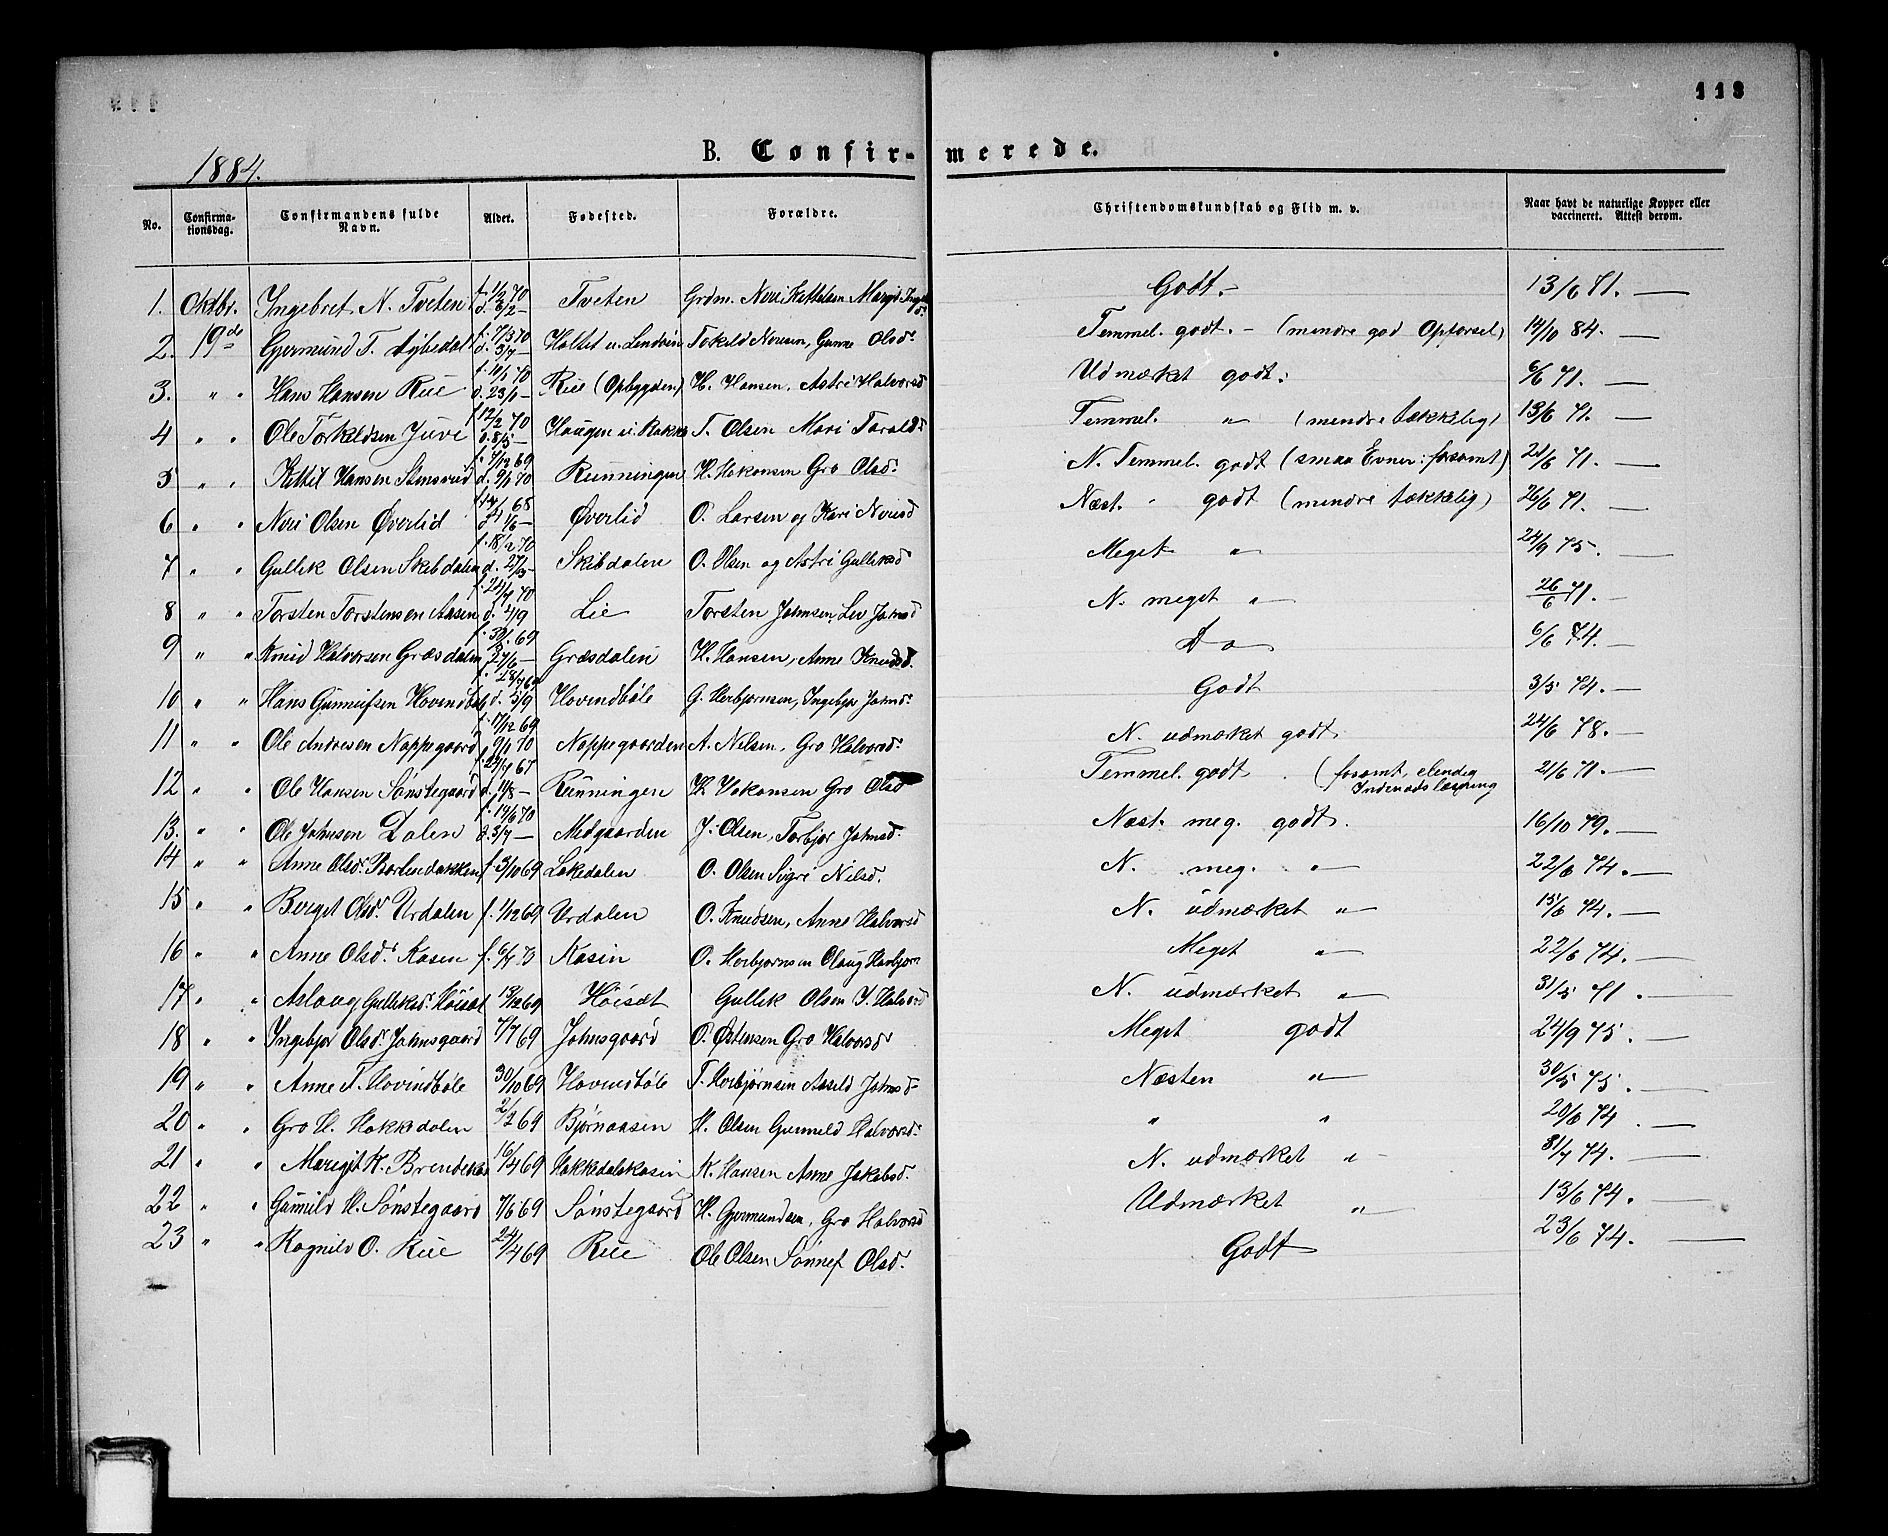 113
1884.
B. Confirmerede.
No. Confirmationsdag. Confirmandens fulde Navn. Alder. Fødested. Forældre. Christendomskundskab og Flid m. v. Naar havt de naturlige Kopper eller vaccineret. Attest derom.
1. Oktbr. Ingebret N. Tveten f. 1/2 70 d. 6/2 — Tveten Grdm. Neri Kittelsen Margit Godt. — 13/6 71. —
2. 19de Gjermund T. f. 7/3 70 d. 3/7 — Holtet u. Tokeld Nerisen, Gunne Olsdr. Temmel. godt. — (mindre god Opførsel) 14/10 84. —
3. " " Hans Hansen Rue f. 10/1 70 d. 23/1 — Rue (Opbygden) H. Hansen, Astri Halvorsd Udmærket godt. 6/6 71. —
4 " " Ole Torkeldsen Juve f 12/2 70 d. 8/5 — Haugen u. Bakka T. Olsen Mari Taraldsdr Temmel. " (mindre tækkelig) 13/6 71. —
5 " " Kittil Hansen Stensrud f. 7/12 69 d. 9/1 70 Runningen H. Hakonsen Gro Olsd. N. Temmel. godt (smaa Evner: forsømt) 21/6 71. —
6 " " Neri Olsen Øverlid f. 14/1 68 d. 1/6 — Øverlid O. Larsen og Kari Nerisd Næst. " godt (mindre tækkelig) 26/6 71. —
7 " " Gullik Olsen Skibdalen f. 18/2 70 d. 27/3 Skibdalen O. Olsen og Astri Gulliksd Meget " 24/9 75. —
8 " " Torsten Torstensen Aasen f. 24/7 70 d. 4/9 Lie Torsten Johnsen, Liv Johnsd N. meget " 26/6 71. —
9 " " Knud Halvorsen Græsdalen f. 30/1 69 27/6 — Græsdalen H. Hansen, Anne Knudsd. Do 6/6 74. —
10 " " Hans Gunnufsen Hovindbøle f. 28/7 69 d. 5/9 Hovindbøle G. Herbjørnsen, Ingebjør Johnsdr Godt 3/5 74. —
11 " " Ole Andresen Noppegaard f. 17/12 69 9/1 70 Noppegaarden A. Nilsen, Gro Halvorsd. N. udmærket godt 24/6 78. —
12 " " Ole Hansen Sønstegaard f. 27/7 67 d. 11/8 — Runningen H. Hakonsen Gro Olsd Temmel. godt (forsømt, elendig Indenadslæsning 21/6 71. —
13. " " Ole Johnsen Dalen f. 14/6 70 d. 3/7 — Midgaarden J. Olsen, Torbjør Johnsd. Næst. meg. godt. 16/10 79. —
14 " " Anne Olsdr. f. 3/10 69 Lakedalen O. Olsen Sigri Nilsd. N. meg. " 22/6 74. —
15 " " Berget Olsdr. Urdalen f. 1/12 69 Urdalen O. Knudsen, Anne Halvorsd N. udmærket " 15/6 74. —
16 " " Anne Olsdr. Kasen f. 6/7 70 Kasin O. Herbjørnsen Olaug Herbjørn N. Meget " 22/6 74. —
17 " " Aslaug Gulliksdr. Høisæt 13/12 69 Høisæt Gullik Olsen I. Halvorsd N. udmærket " 31/5 71. —
18 " " Ingebjør Olsdr. Johnsgaard 7/7 69 Johnsgaard O. Østensen Gro Halvorsd Meget godt 24/9 75. —
19 " " Anne T. Hovindbøle 30/10 69 Hovindbøle T. Herbjørnsen Aaseld Johnsd. Næsten " 30/5 75. —
20 " " Gro H. Hakkedalen 2/2 69 Bjørnaasen H. Olsen Gunnild Halvorsd. " " 20/6 74. —
21 " " Margit K. 16/4 69 Hakkedalskasin K. Hansen Anne Jakobsd. N. udmærket " 31/7 74. —
22 " " Gunild H. Sønstegaard 7/6 69 Sønstegaard H. Gjermundsen, Gro Halvorsd Udmærket " 13/6 74. —
23 " " Ragnild O. Rue 24/4 69 Rue Ole Olsen Sønnef Olsd. Godt 23/6 74. —